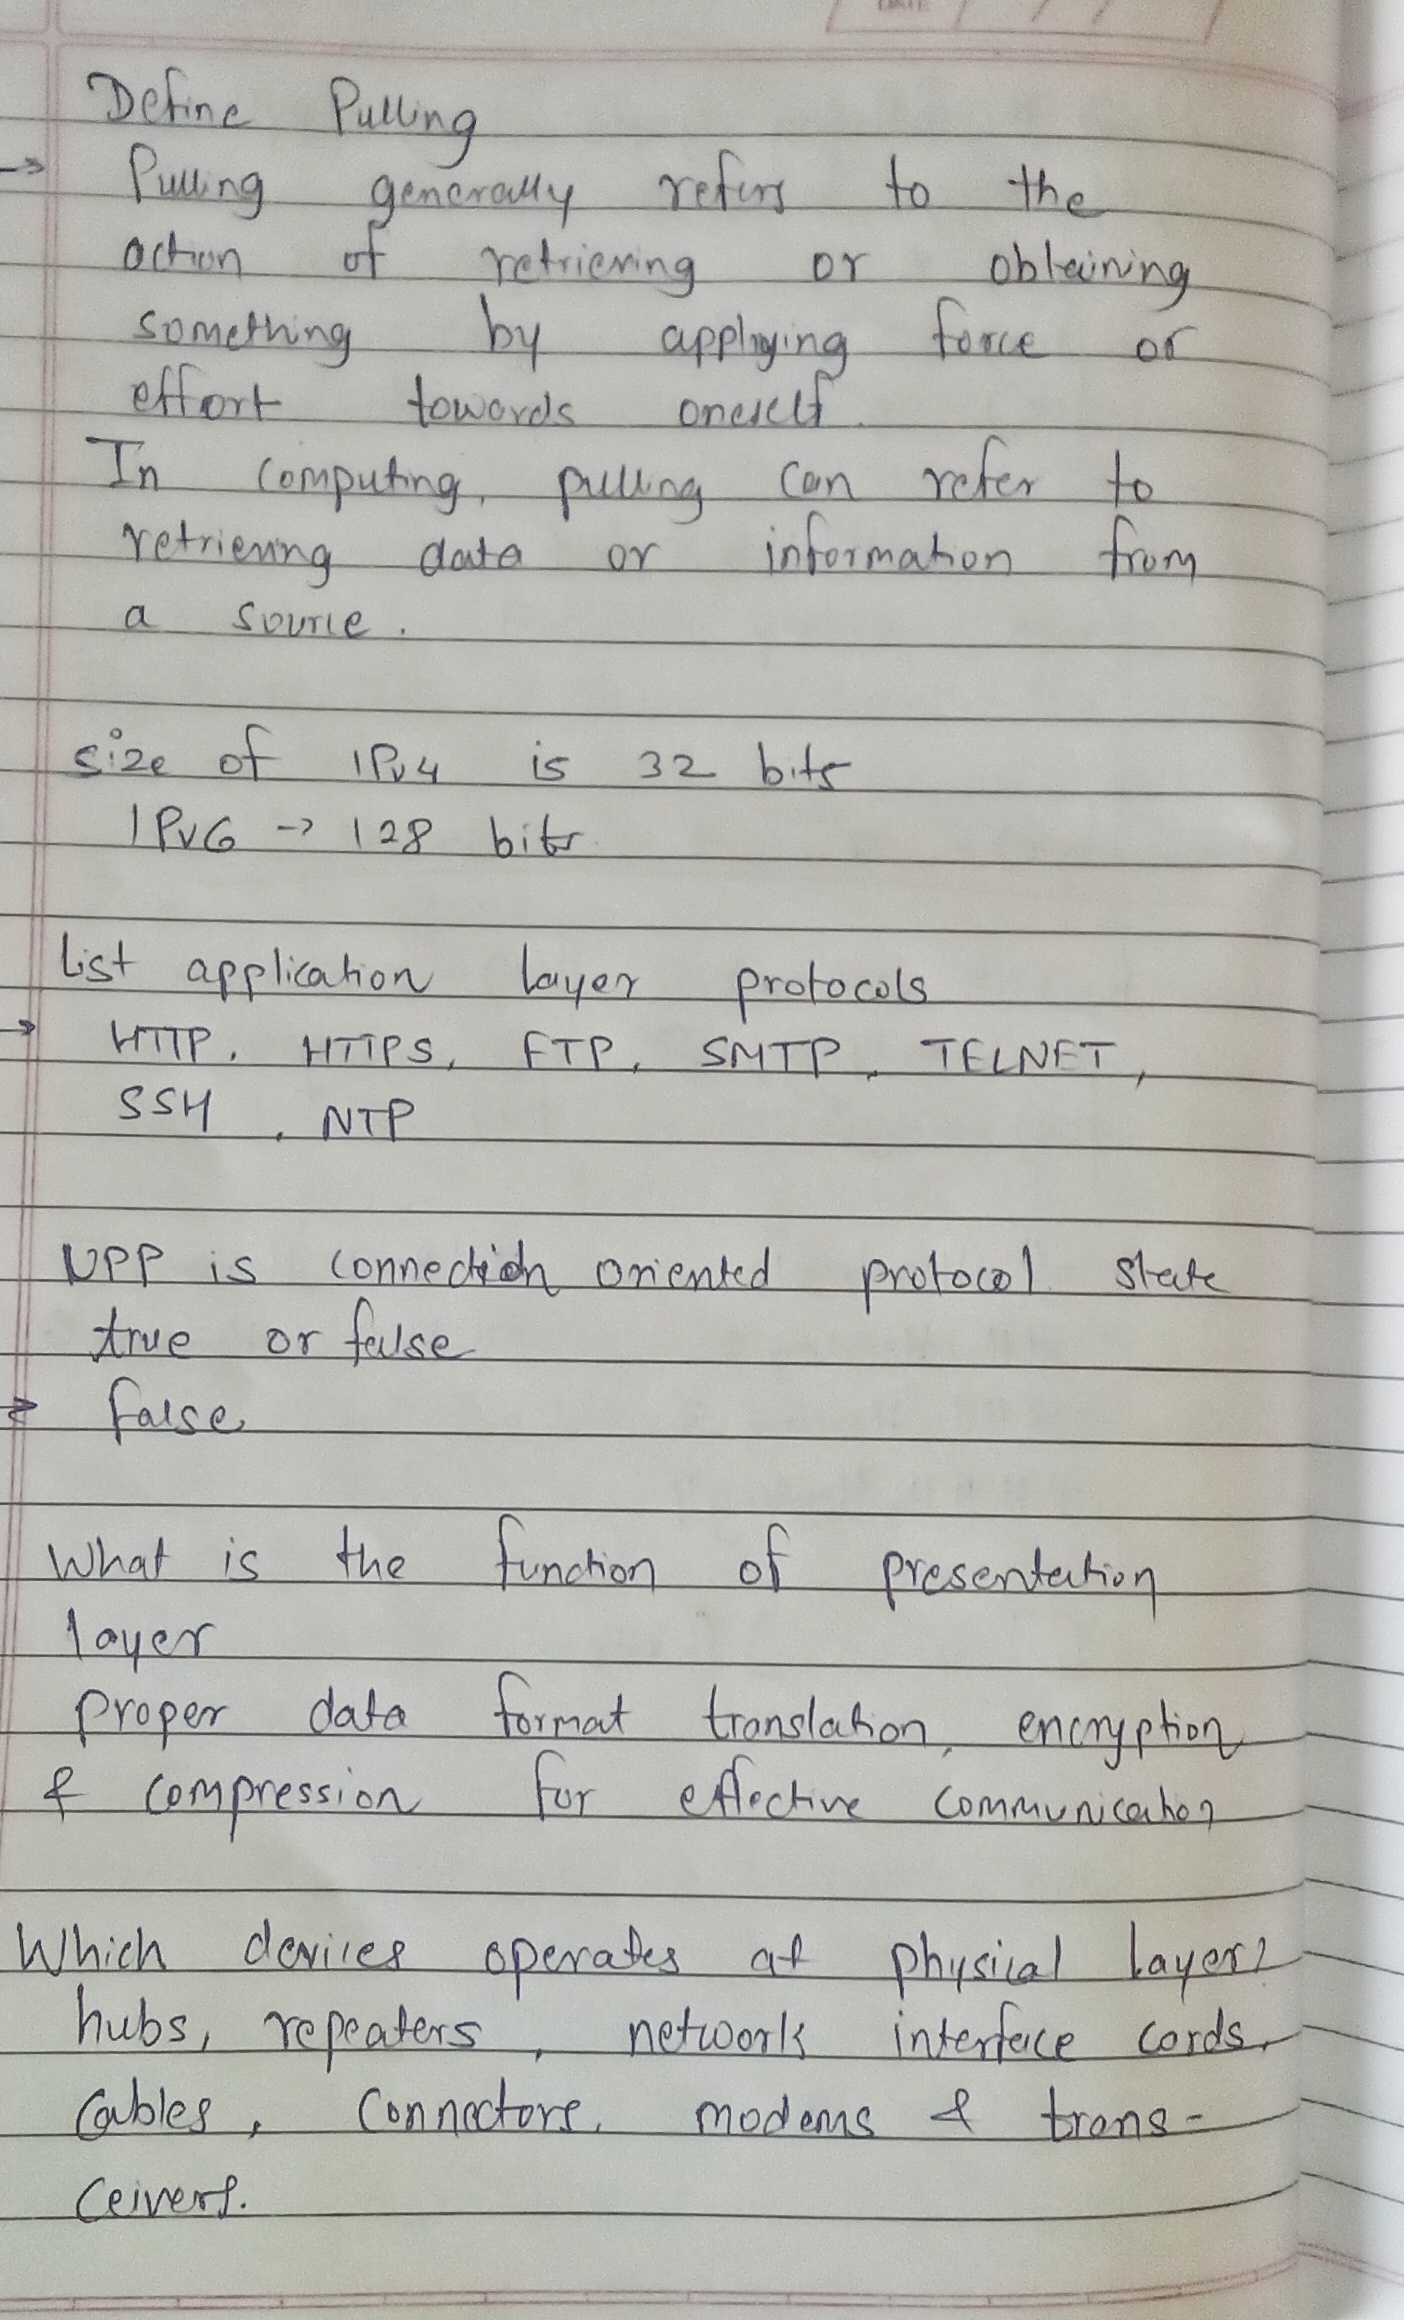 DATE / / /
Define Pulling
→ Pulling generally refers to the
action of retrieving or obtaining
something by applying force or
effort towards oneself.
In computing, pulling can refer to
retrieving data or information from
a source.
size of IPv4 is 32 bits
IPv6 → 128 bits
List application layer protocols
→ HTTP, HTTPS, FTP, SMTP, TELNET,
SSH, NTP
UPP is connection oriented protocol. state
true or false
→ false
What is the function of presentation
layer
proper data format translation, encryption
& compression for effective communication
Which devices operates at physical layer?
hubs, repeaters, network interface cards,
cables, connectors, modems & trans-
ceivers.